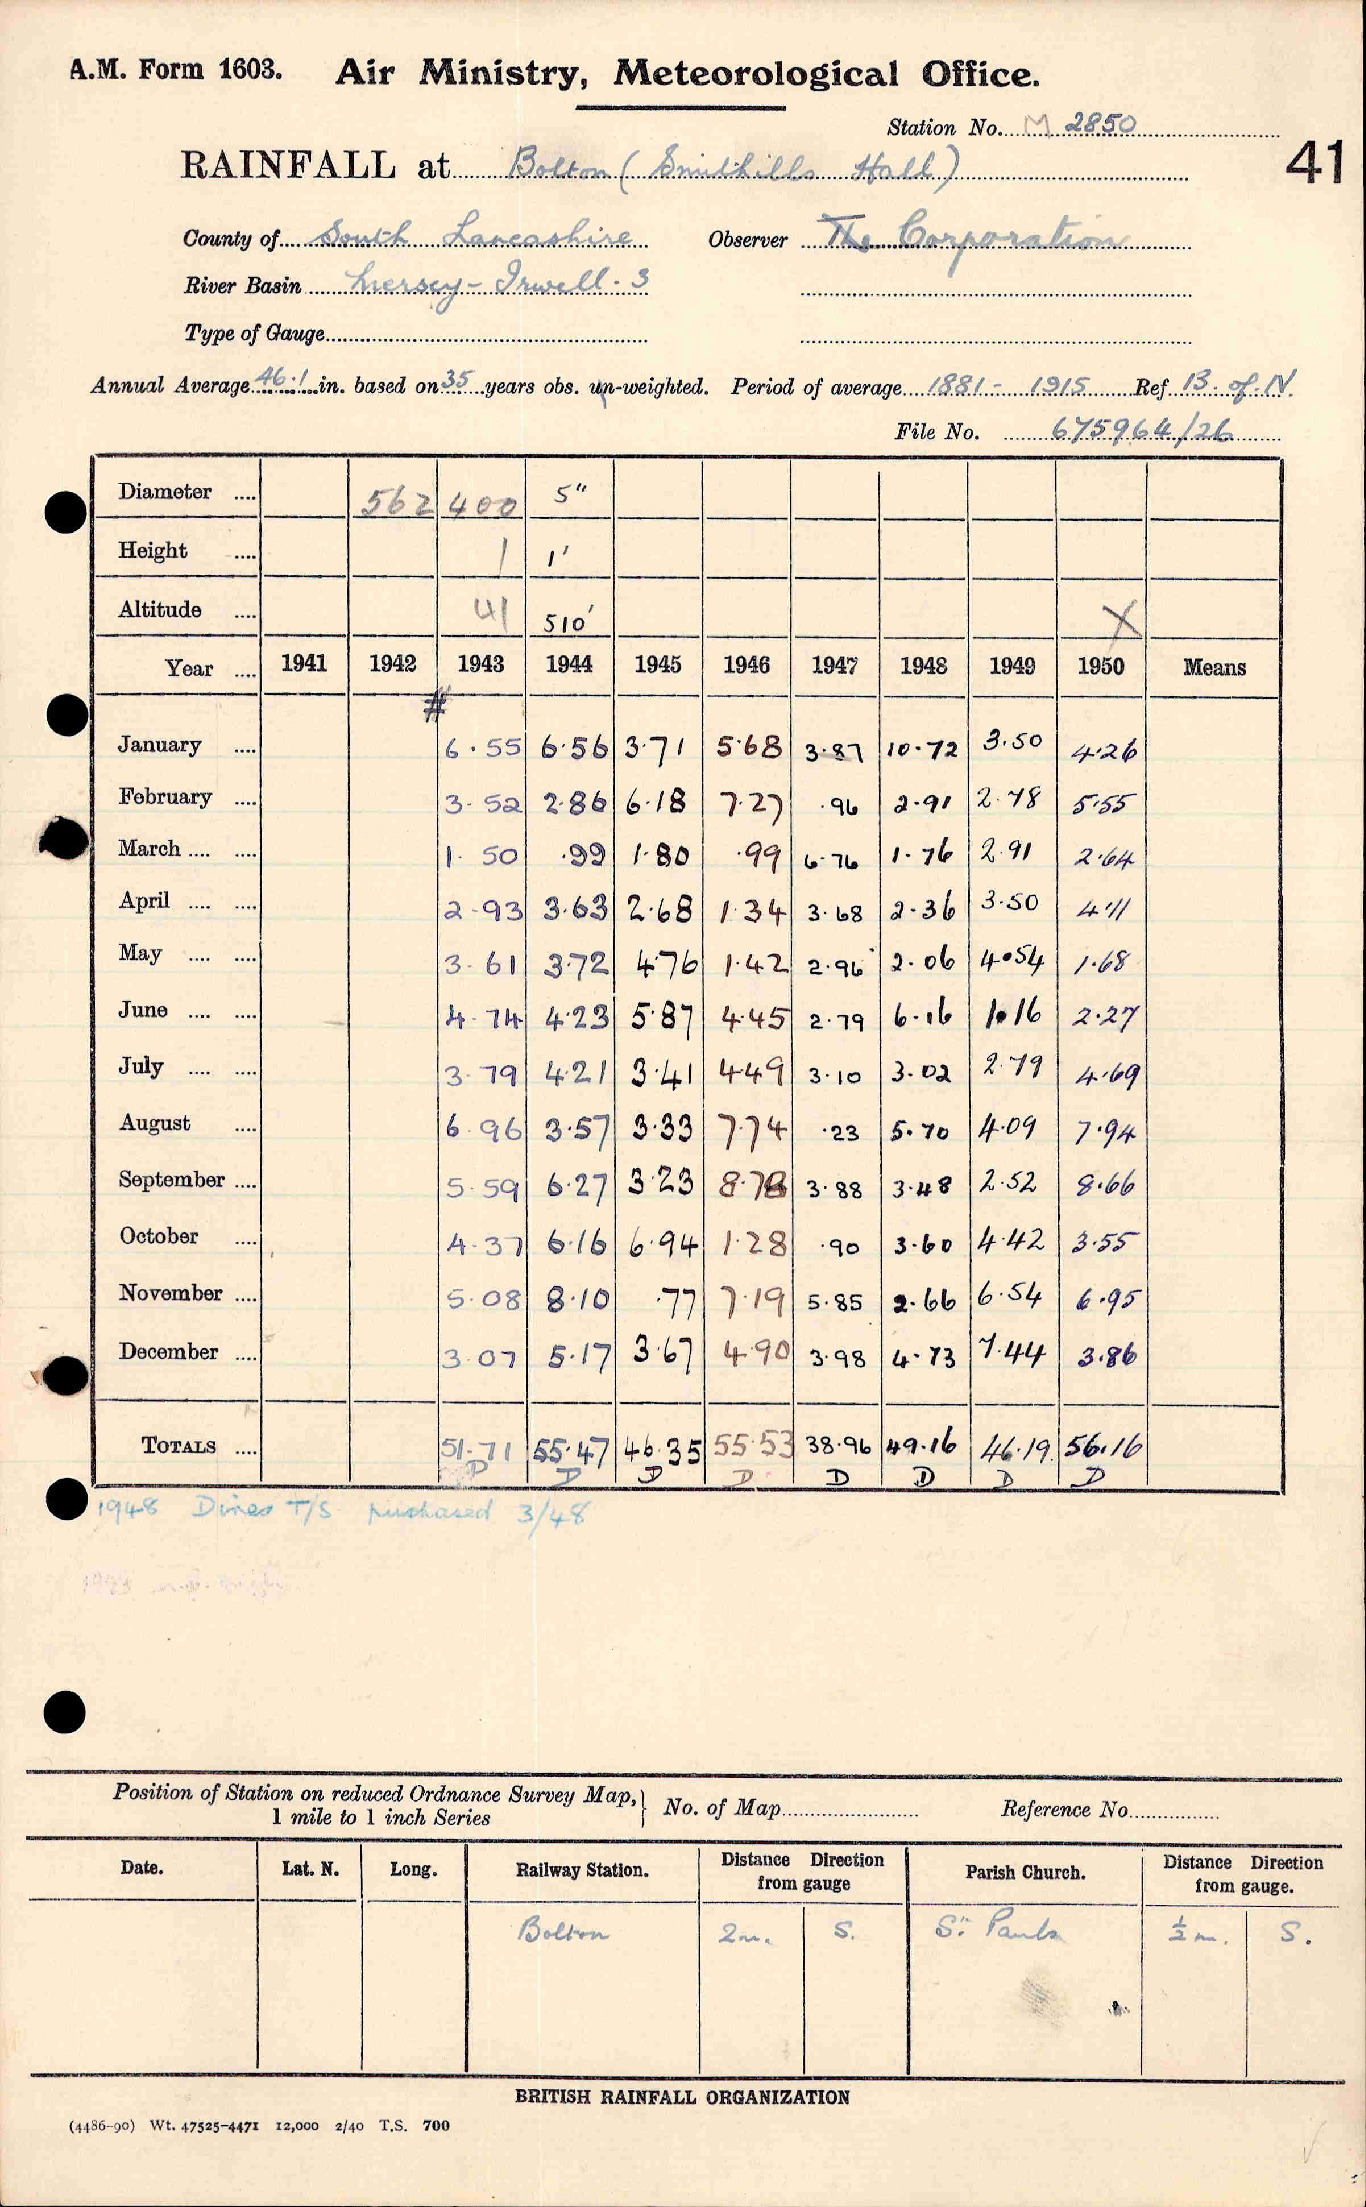 A.M. Form 1603. Air Ministry, Meteorological Office.
Station No. M 2850
41
RAINFALL at Bolton (Smithills Hall)
County of South Lancashire Observer The Corporation
River Basin Mersey - Irwell. 3
Type of Gauge
Annual Average 46.1 in. based on 35 years obs. un-weighted. Period of average 1881 - 1915 Ref B. of. N.
File No. 675964/26
Diameter .... 562 400 5"
Height .... 1 1'
Altitude .... 41 510' X
Year .... 1941 1942 1943 1944 1945 1946 1947 1948 1949 1950 Means
#
January .... 6.55 6.56 3.71 5.68 3.87 10.72 3.50 4.26
February .... 3.52 2.86 6.18 7.27 .96 2.91 2.78 5.55
March .... .... 1.50 .99 1.80 .99 6.76 1.76 2.91 2.64
April .... .... 2.93 3.63 2.68 1.34 3.68 2.36 3.50 4.11
May .... .... 3.61 3.72 4.76 1.42 2.96 2.06 4.54 1.68
June .... .... 4.74 4.23 5.87 4.45 2.79 6.16 1.16 2.27
July .... .... 3.79 4.21 3.41 4.49 3.10 3.02 2.79 4.69
August .... 6.96 3.57 3.33 7.74 .23 5.70 4.09 7.94
September .... 5.59 6.27 3.23 8.78 3.88 3.48 2.52 8.66
October .... 4.37 6.16 6.94 1.28 .90 3.60 4.42 3.55
November .... 5.08 8.10 .77 7.19 5.85 2.66 6.54 6.95
December .... 3.07 5.17 3.67 4.90 3.98 4.73 7.44 3.86
TOTALS .... 51.71 55.47 46.35 55.53 38.96 49.16 46.19 56.16
D D D D D D D D
1948 Dines T/S purchased 3/48
Position of Station on reduced Ordnance Survey Map, } No. of Map Reference No.
1 mile to 1 inch Series
Date. Lat. N. Long. Railway Station. Distance Direction from gauge Parish Church. Distance Direction from gauge.
Bolton 2m. S. St Pauls ½ m. S.
BRITISH RAINFALL ORGANIZATION
(4486-90) Wt. 47525-4471 12,000 2/40 T.S. 700